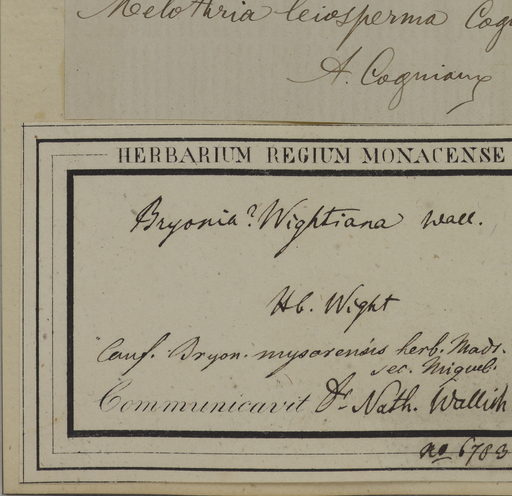 Melothria leiosperma Cogn
A. Cogniaux
HERBARIUM REGIUM MONACENSE
Bryonia? Wightiana Wall.
Hb. Wight
Conf. Bryon. mysorensis herb. Madr.
sec. Miquel.
Communicavit Dr Nath. Wallich
no 6703